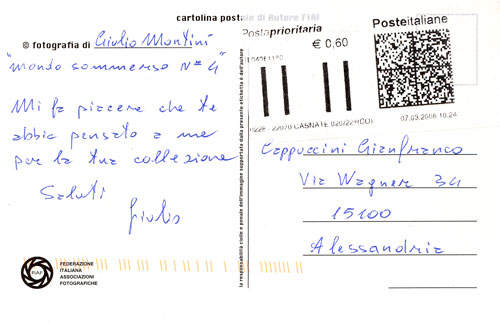 cartolina postale di Autore FIAF
© fotografia di Giulio Montini
"mondo sommerso N° 4"
Mi fa piacere che te
abbia pensato a me
per la tua collezione
Saluti
Giulio
FIAF
FEDERAZIONE
ITALIANA
ASSOCIAZIONI
FOTOGRAFICHE
la responsabilità civile e penale dell'immagine supportata dalla presente etichetta è dell'autore
Postaprioritaria
Posteitaliane
€ 0,60
22070 CASNATE
07.03.2008 18.24
Cappuccini Gianfranco
Via Wagner 34
15100
Alessandria